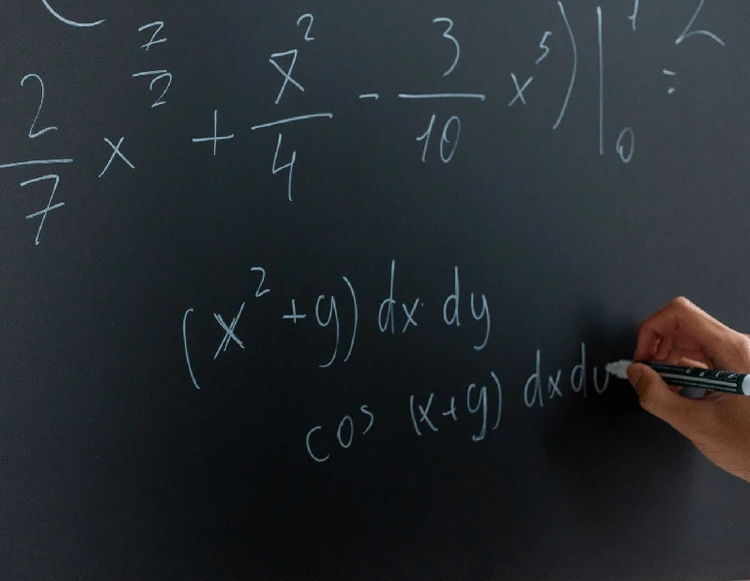 2/7 x^(7/2) + x^2/4 - 3/10 x^5)|_0^1 =
(x^2+y) dx dy
cos (x+y) dxdy